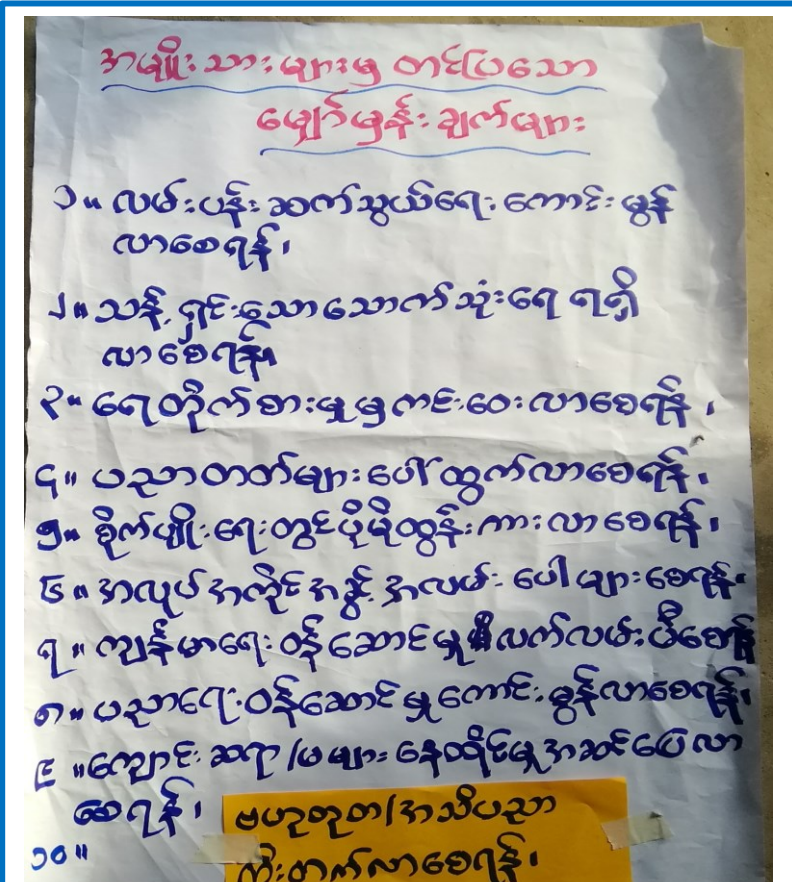 အမျိုးသားများမှ တင်ပြသော
မျှော်မှန်းချက်များ
၁။ လမ်းပန်းဆက်သွယ်ရေး ကောင်းမွန်
လာစေရန်၊
၂။ သန့်ရှင်းသော သောက်သုံးရေ ရရှိ
လာစေရန်။
၃။ ရေတိုက်စားမှုမှ ကင်းဝေးလာစေရန်၊
၄။ ပညာတတ်များ ပေါ်ထွက်လာစေရန်၊
၅။ စိုက်ပျိုးရေးတွင် ပိုမိုထွန်းကားလာစေရန်၊
၆။ အလုပ်အကိုင်အခွင့်အလမ်း ပေါများစေရန်၊
၇။ ကျန်းမာရေးဝန်ဆောင်မှု လက်လမ်းမီစေရန်
၈။ ပညာရေးဝန်ဆောင်မှု ကောင်းမွန်လာစေရန်၊
၉။ ကျောင်းဆရာ/မများ နေထိုင်မှု အဆင်ပြေလာ
စေရန်၊
ဗဟုသုတ/အသိပညာ
တိုးတက်လာစေရန်၊
၁၀။